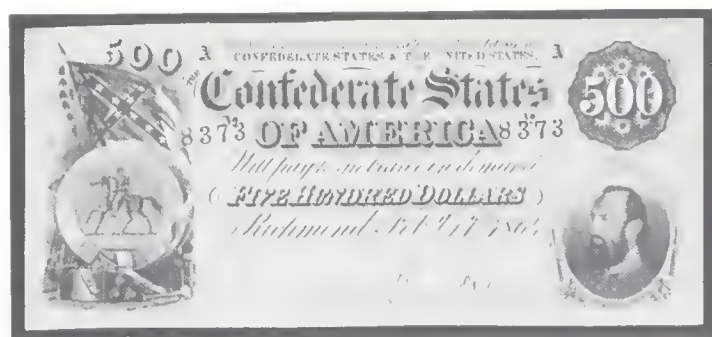 500 A A
CONFEDERATE STATES & THE UNITED STATES.
THE
Confederate States 500
No 8373 OF AMERICA No 8373
Will pay to on demand
FIVE HUNDRED DOLLARS
Richmond Feb 17